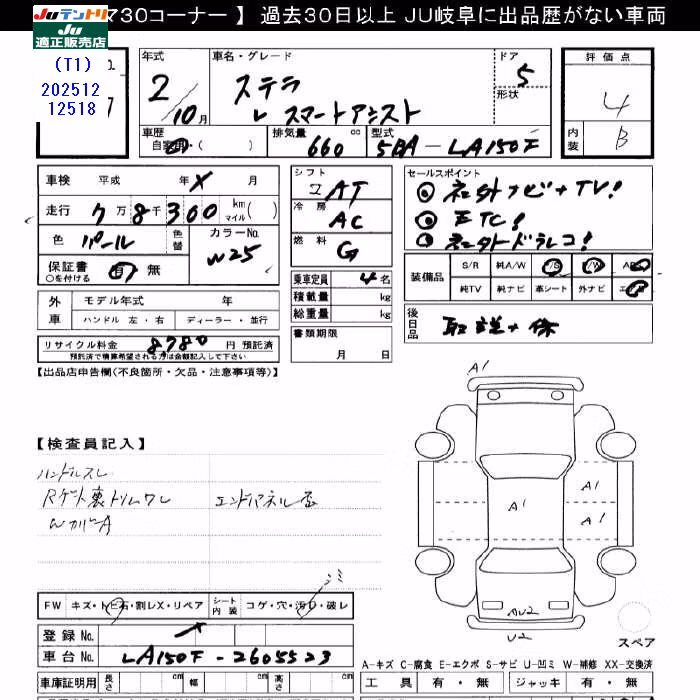 7730コーナー 】 過去30日以上 JU岐阜に出品歴がない車両
JUテントリ
Ju
適正販売店
(T1)
202512
12518
年式 車名・グレード ドア 評価点
2/10月 ステラ 5 4
L スマートアシスト 形状
車歴 排気量 cc 型式 内装 B
自家用・( ) 660 5BA-LA150F
車検 平成 年 X 月 シフト セールスポイント
走行 7万8千300 km マイル( ) コ AT ①社外ナビ+TV!
色 パール 色替 カラーNo. W25 冷房 AC ②ETC!
保証書 有・無 燃料 G ③社外ドラレコ!
○を付ける
乗車定員 4名 装備品 S/R 純A/W P/S P/W ABS
外車 モデル年式 年 積載量 kg 純TV 純ナビ 革シート 外ナビ エアB
ハンドル 左・右 ディーラー・並行 総重量 kg
リサイクル料金 8780 円 預託済 書類期限 後日品 取説+保
預託済で積算希望される方は金額記入して下さい 月 日
【出品店申告欄(不良箇所・欠品・注意事項等)】
A1
【検査員記入】
ハンドルスレ
Rゲート裏トリムワレ エンドパネル歪
WカバーA
A1 A1
A1
シミ
FW キズ・トビ石・割レX・リペア シート内装 コゲ・穴・汚レ・破レ
AU2
U2
登録No.
スペア
車台No. LA150F-2605523
A-キズ C-腐食 E-エクボ S-サビ U-凹ミ W-補修 XX-交換済
車庫証明用 長さ cm 幅 cm 高さ cm 工具 有・無 ジャッキ 有・無